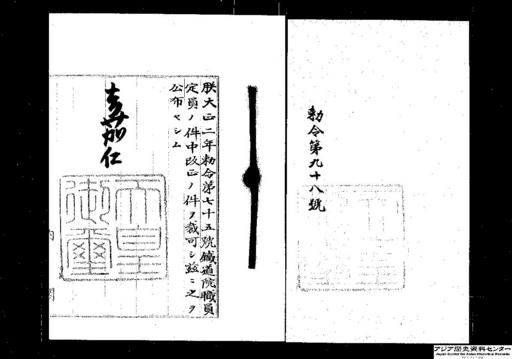 勅令第九十八號
朕大正二年勅令第七十五號鐵道院職員
定員ノ件中改正ノ件ヲ裁可シ玆ニ之ヲ
公布セシム
嘉仁
天皇
御璽
内閣
アジア歴史資料センター
Japan Center for Asian Historical Records